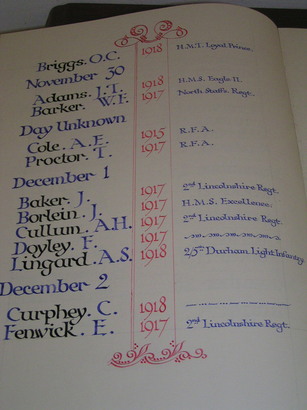 Briggs. O.C. 1918 H.M.T. Loyal Prince.
November 30
Adams. J.T. 1918 H.M.S. Eagle II.
Barker. W.F. 1917 North Staffs. Regt.
Day Unknown
Cole. A.E. 1915 R.F.A.
Proctor. T. 1917 R.F.A.
December 1
Baker. J. 1917 2nd Lincolnshire Regt.
Borlein. J. 1917 H.M.S. Excellence.
Cullum. A.H. 1917 2nd Lincolnshire Regt.
Doyley. F. 1917
Lingard. A.S. 1918 2/5th Durham Light Infantry
December 2
Curphey. C. 1918
Fenwick. E. 1917 2nd Lincolnshire Regt.